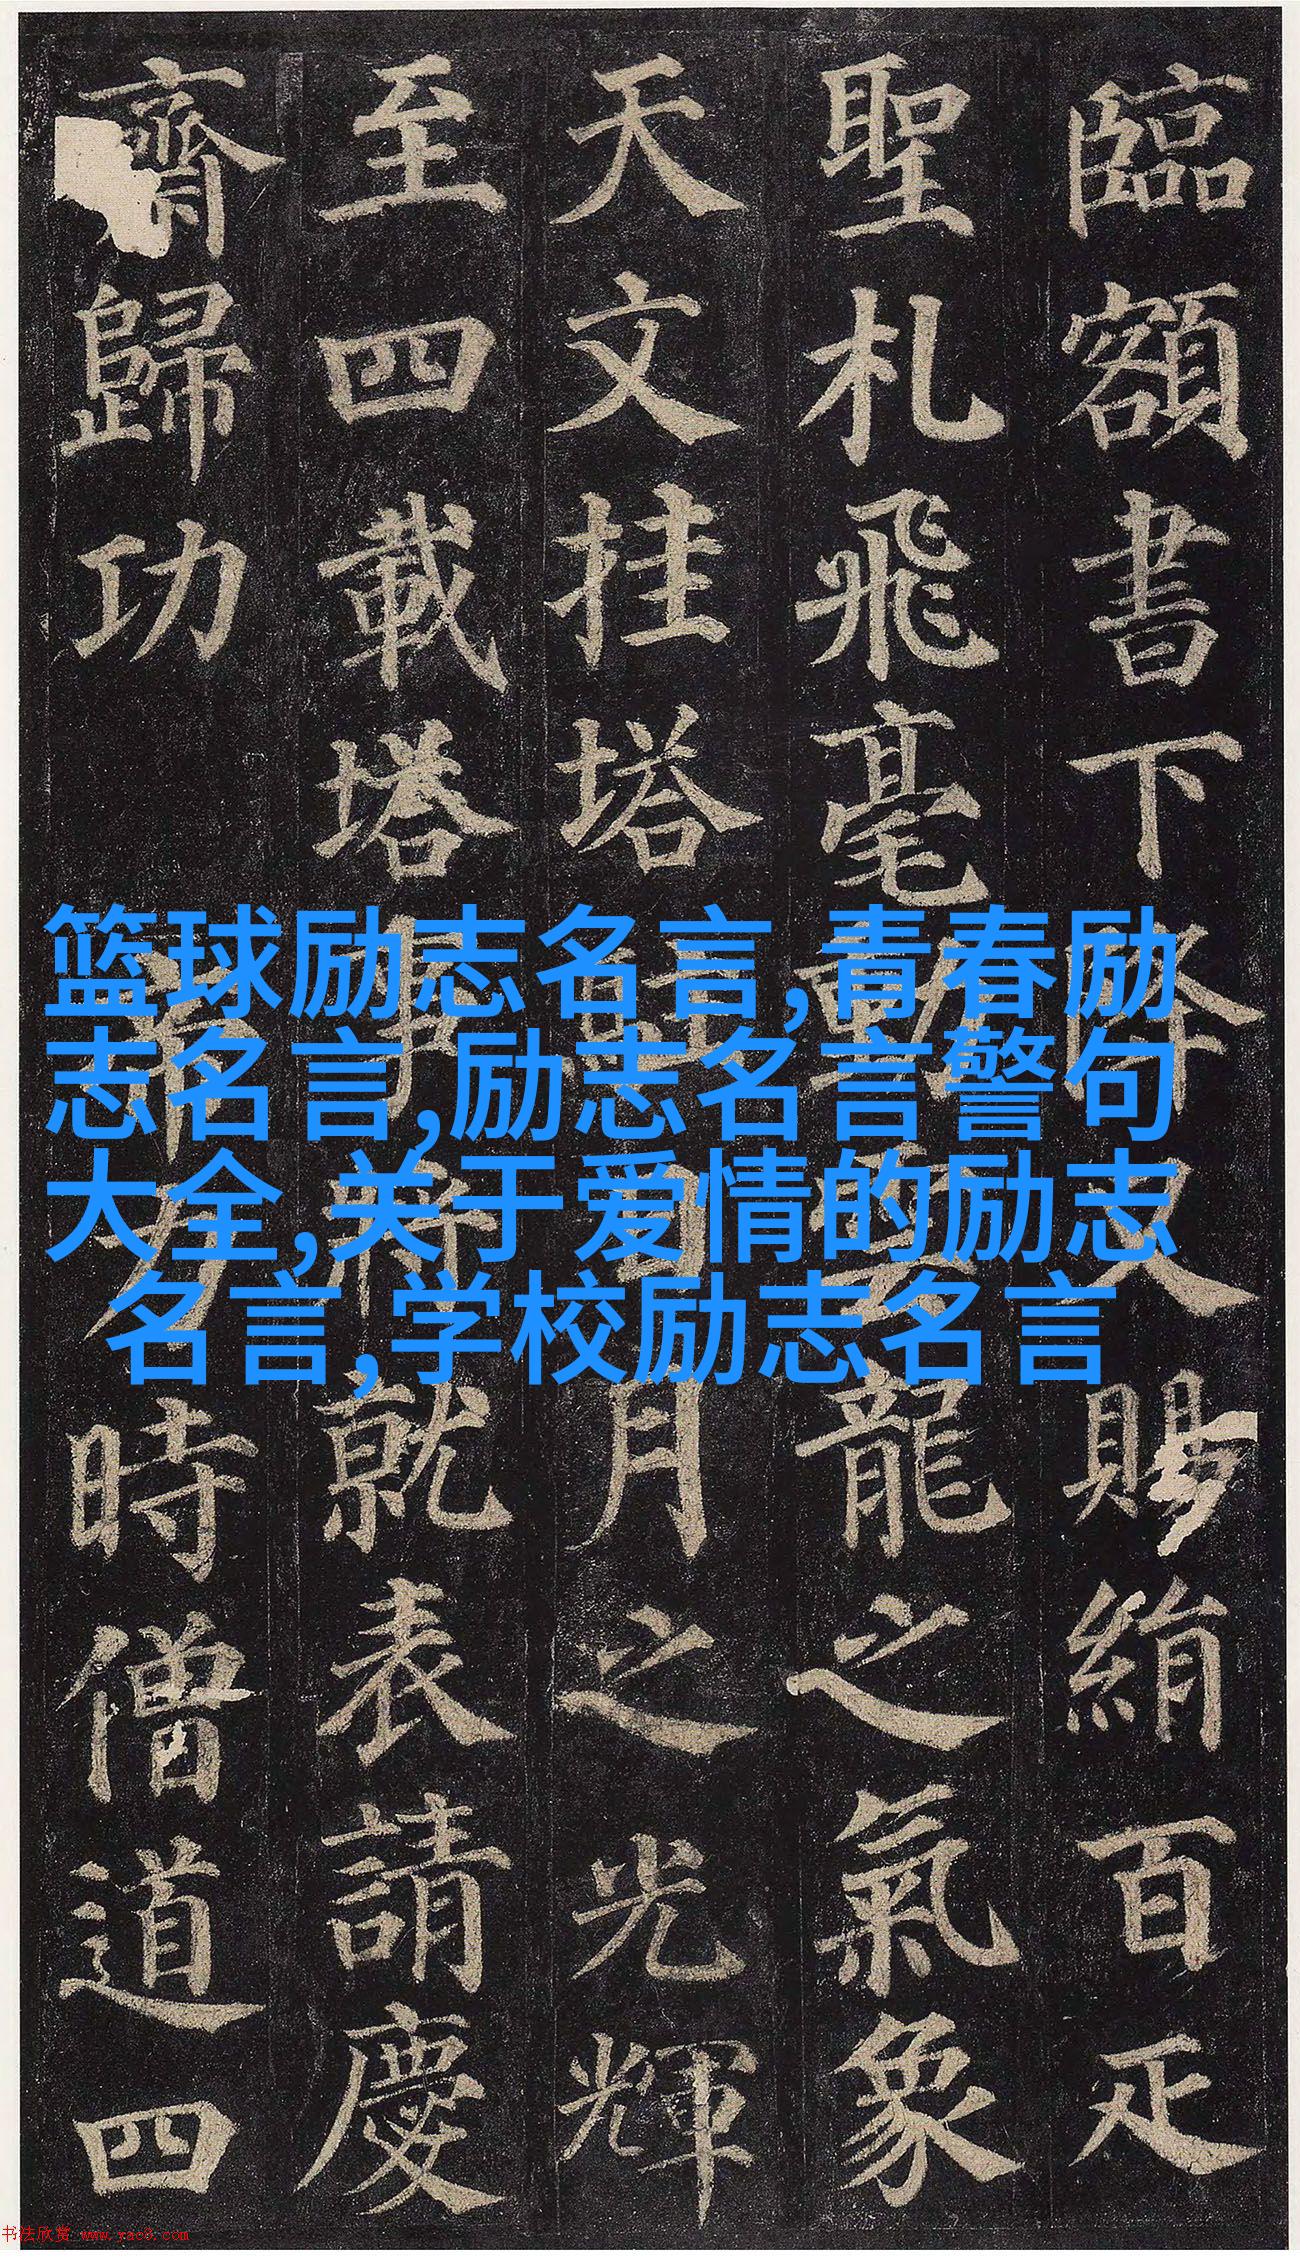 臨額書下降又賜絹百疋
聖札飛毫動雲龍之氣象
天文挂塔駐日月之光輝
至四載塔事將就表請慶
齋歸功帝力時僧道四
篮球励志名言,青春励
志名言,励志名言警句
大全,关于爱情的励志
名言,学校励志名言
书法欣赏 www.yac8.com